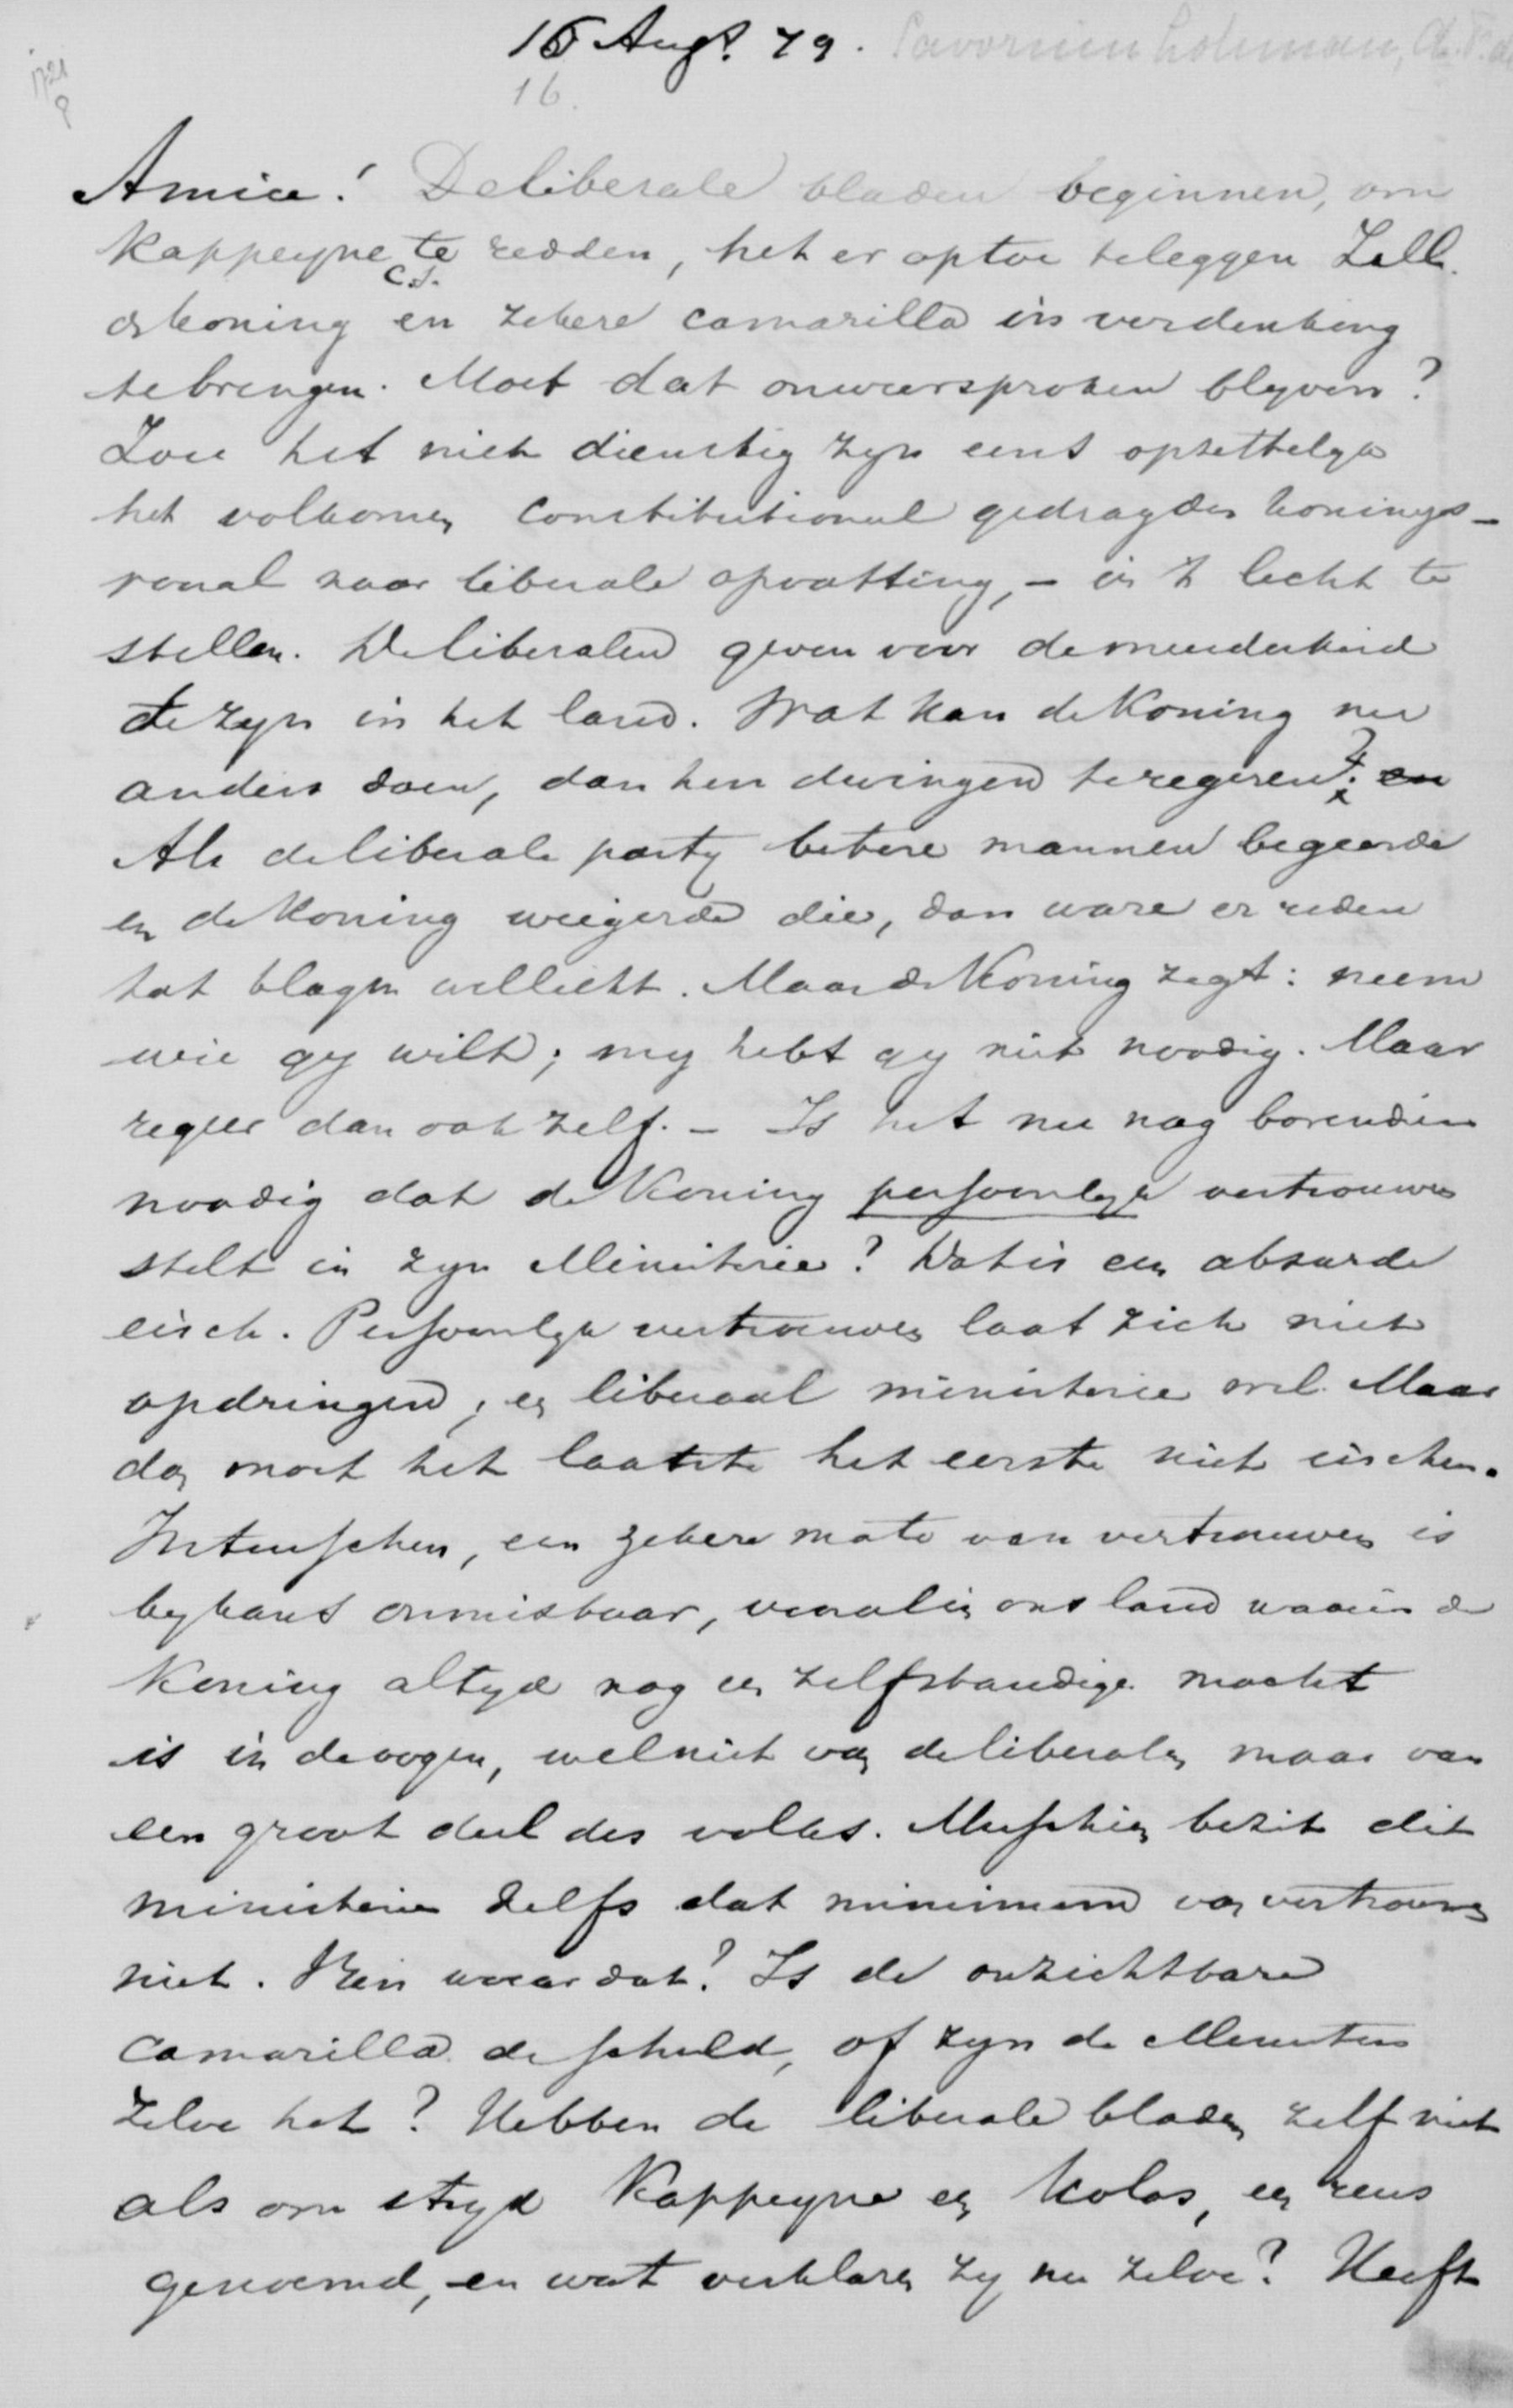 16 Augs. 79. Savornin Lohman, A.F. de
16.
1721
Amice! De liberale bladen beginnen, om
Kappeyne c.s. te redden, het er op toe te leggen Z.M.
de koning en zekere camarilla in verdenking
te brengen. Moet dat onweersproken blyven?
Zou het niet dienstig zyn eens opzettelyk
het volkomen constitutioneel gedrag des konings -
vooral naar liberale opvatting, - in 't licht te
stellen. De liberalen geven voor de meerderheid
te zyn in het land. Wat kan de Koning nu
anders doen, dan hen dwingen te regeren? en
Als de liberale party betere mannen begeerde
en de Koning weigerde die, dan ware er reden
tot klagen wellicht. Maar de Koning zegt: neem
wie gy wilt; my hebt gy niet noodig. Maar
regeer dan ook zelf. - Is het nu nog bovendien
noodig dat de Koning persoonlyk vertrouwen
stelt in zyn Ministerie? Dat is een absurde
eisch. Persoonlyk vertrouwen laat zich niet
opdringen; een liberaal ministerie wel. Maar
dan moet het laatste het eerste niet eischen.
Intusschen, een zekere mate van vertrouwen is
bykans onmisbaar, vooral in ons land waarin de
Koning altyd nog een zelfstandige macht
is in de oogen, wel niet van de liberalen maar van
een groot deel des volks. Misschien bezit dit
ministerie zelfs dat minimum van vertrouwen
niet. Een waar dat! Is de onzichtbare
camarilla de schuld, of zyn de Ministers
zelve het? Hebben de liberale bladen zelf niet
als om stryd Kappeyne een kolos, een reus
genoemd, en wat verklaren zy nu zelve? Heeft